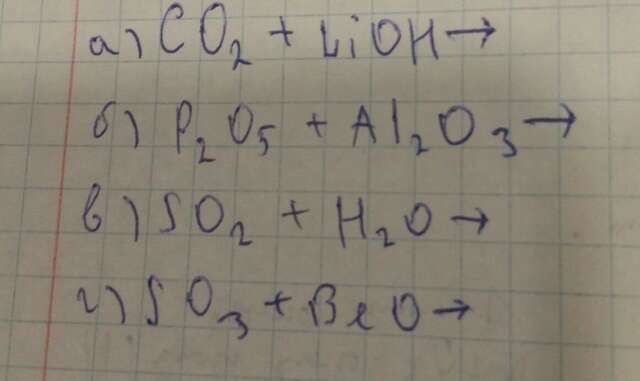 а) CO₂ + LiOH →
б) P₂O₅ + Al₂O₃ →
в) SO₂ + H₂O →
г) SO₃ + BeO →